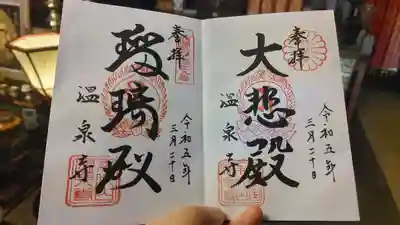 奉拝
大悲殿
温泉寺
令和五年
三月二十日
奉拝
瑠璃殿
温泉寺
令和五年
三月二十日